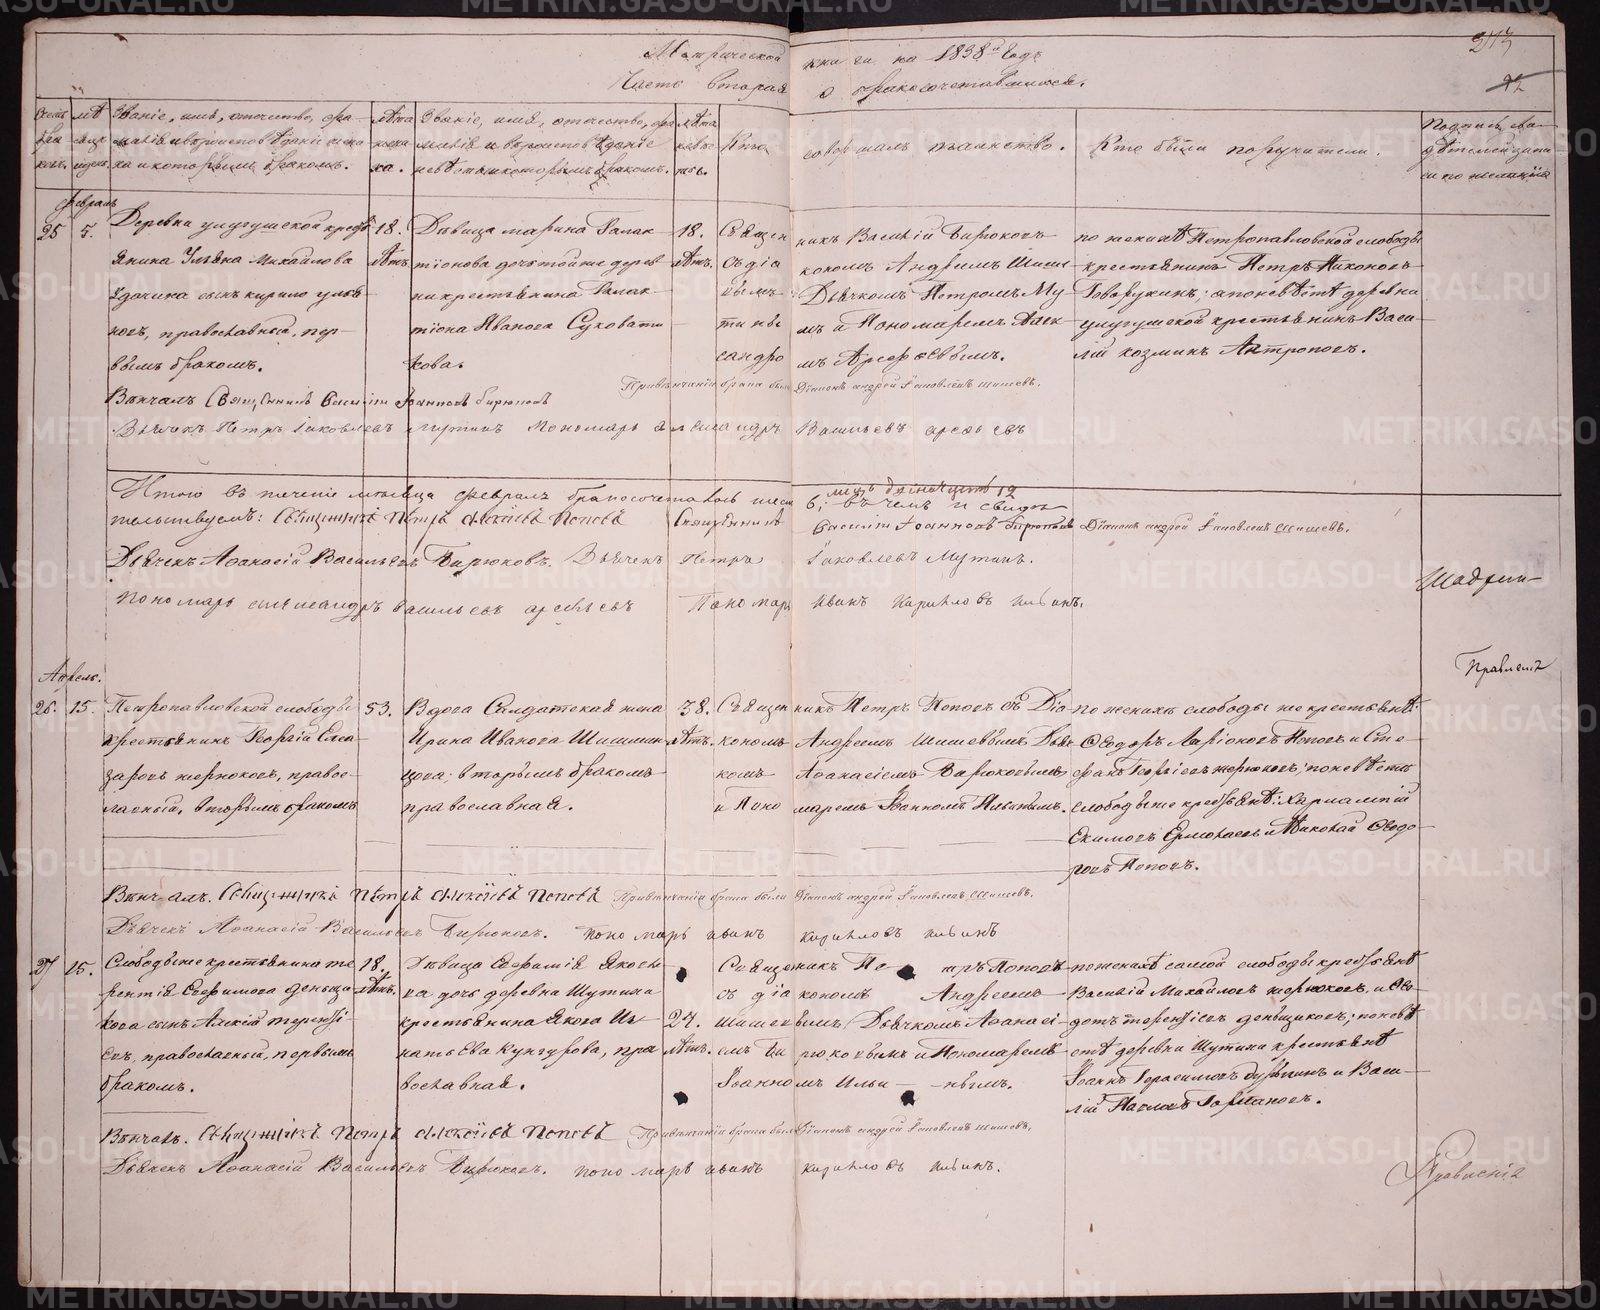 Метрической книги на 1838й Годъ
213
Часть вторая о бракосочетавшихся.
92
Счетъ браковъ.
Мѣсяцъ и день.
Званіе, имя, отечество, фамилія и вѣроисповѣданіе жениха и которымъ бракомъ.
Лѣта жениха.
Званіе, имя, отечество, фамилія и вѣроисповѣданіе невѣсты и которымъ бракомъ.
Лѣта невѣсты.
Кто совершалъ таинство.
Кто были поручители.
Подпись свидѣтелей записи по желанію
Февраль
25
5.
Деревни улугушской кресть
янина Ульяна Михайлова
Удачина сынъ кирило улья
новъ, православный, пер-
вымъ бракомъ.
18.
лѣтъ.
Дѣвица марина Галак
тіонова дочь той же дерев
ни крестьянина Галак-
тіона Иванова Суховати
кова.
18.
лѣтъ.
Священникъ Василій Бирюковъ
съ діакономъ Андреемъ Шише
вымъ Дьячкомъ Петромъ Му
тинымъ и Пономаремъ Алек
сандромъ Арефьевымъ.
по женихѣ Петропавловской слободы
крестьянинъ Петръ Никоновъ
Говорухинъ; а по невѣстѣ деревни
улугушской крестьянинъ Васи-
лій козминъ Антроповъ.
При вѣнчаніи брака былъ Діаконъ андрей Іаковлевъ шишевъ.
Вѣнчалъ Священникъ Василій Іоанновъ бирюковъ
Дьячекъ Петръ Іаковлевъ мутинъ Пономарь александръ Васильевъ арефьевъ
Итого въ теченіе мѣсяца февраля бракосочеталось шесть 6; лицъ двѣнадцать 12 въ чемъ и свидѣ
тельствуемъ: Священникъ Петръ Алексіевъ Поповъ Священникъ Василій Іоанновъ Бирюковъ Діаконъ андрей Іаковлевъ Шишевъ.
Дьячекъ Аѳанасій Васильевъ Бирюковъ. Дьячекъ Петръ Іаковлевъ Мутинъ.
Пономарь александръ васильевъ арефьевъ Пономарь Иванъ Кириловъ Ильинъ.
Шадрин-
Правленія
Апрель.
26.
15.
Петропавловской слободы
крестьянинъ Георгій Елеа
заровъ жернововъ, правос-
лавный, вторымъ бракомъ
53.
Вдова Солдатская жена
Ирина Иванова Шишкин
цова; вторымъ бракомъ
православная.
38.
лѣтъ.
Священникъ Петръ Поповъ съ Діа
кономъ Андреемъ Шишевымъ Дьяч
комъ Аѳанасіемъ Бирюковымъ
и Пономаремъ Іоанномъ Ильинымъ.
по женихѣ слободы же крестьянѣ:
Ѳеодоръ Ларіоновъ Поповъ и Сте-
фанъ Георгіевъ жернововъ; по невѣстѣ
слободы же крестьянѣ: Харлампій
Екимовъ Ермолаевъ и Николай Ѳеодо-
ровъ Поповъ.
Вѣнчалъ. Священникъ Петръ Алексіевъ Поповъ При вѣнчаніи брака были Діаконъ андрей Іаковлевъ шишевъ.
Дьячекъ Аѳанасій Васильевъ Бирюковъ. пономарь иванъ кириловъ ильинъ
27
15.
Слободы же крестьянина те
рентія Ефимова деньщи
кова сынъ Алексій теренті-
евъ, православный, первымъ
бракомъ.
18.
лѣтъ.
Дѣвица Евфимія Яковле
ва дочь деревни Шутина
крестьянина Якова Иг-
натьева Кунгурова, пра
вославная.
24.
лѣтъ.
Священникъ Петръ Поповъ
съ діакономъ Андреемъ
Шишевымъ Дьячкомъ Аѳанасі-
емъ Бирюковымъ и Пономаремъ
Іоанномъ Ильинымъ.
по женихѣ самой слободы крестьянѣ
Василій Михайловъ жернововъ, и Ѳео
дотъ терентіевъ деньщиковъ; по невѣ
стѣ деревни Шутина крестьянѣ
Іоаннъ Герасимовъ Бурыкинъ и Васи-
лій Павловъ Горшановъ.
Вѣнчалъ. Священникъ Петръ Алексіевъ Поповъ При вѣнчаніи брака былъ Діаконъ андрей Іаковлевъ шишевъ.
Дьячекъ Аѳанасій Васильевъ Бирюковъ. пономарь иванъ кириловъ ильинъ.
Правленія
METRIKI.GASO-URAL.RU